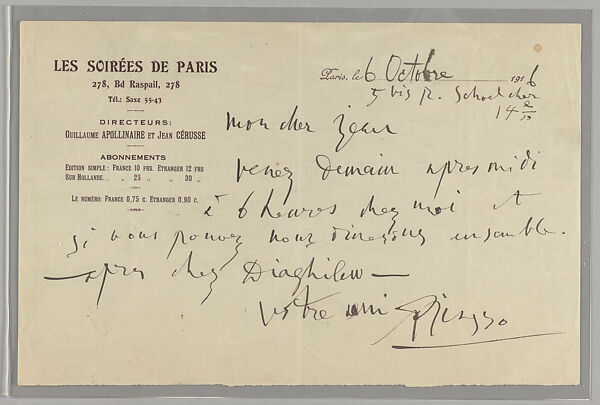 LES SOIRÉES DE PARIS
278, Bd Raspail, 278
Tél.: Saxe 55-43
DIRECTEURS:
GUILLAUME APOLLINAIRE ET JEAN CÉRUSSE
ABONNEMENTS
EDITION SIMPLE: FRANCE 10 FRS. ETRANGER 12 FRS
SUR HOLLANDE... „ 25 „ „ 30 „
LE NUMÉRO: FRANCE 0,75 C. ETRANGER 0,90 C.
Paris, le 6 Octobre 1916
5 bis R. Schoelcher
14e
mon cher jean
venez Demain apres midi
à 6 heures chez moi et
si vous pouvez nous dinerons ensamble.
—apres chez Diaghilew—
votre ami Picasso